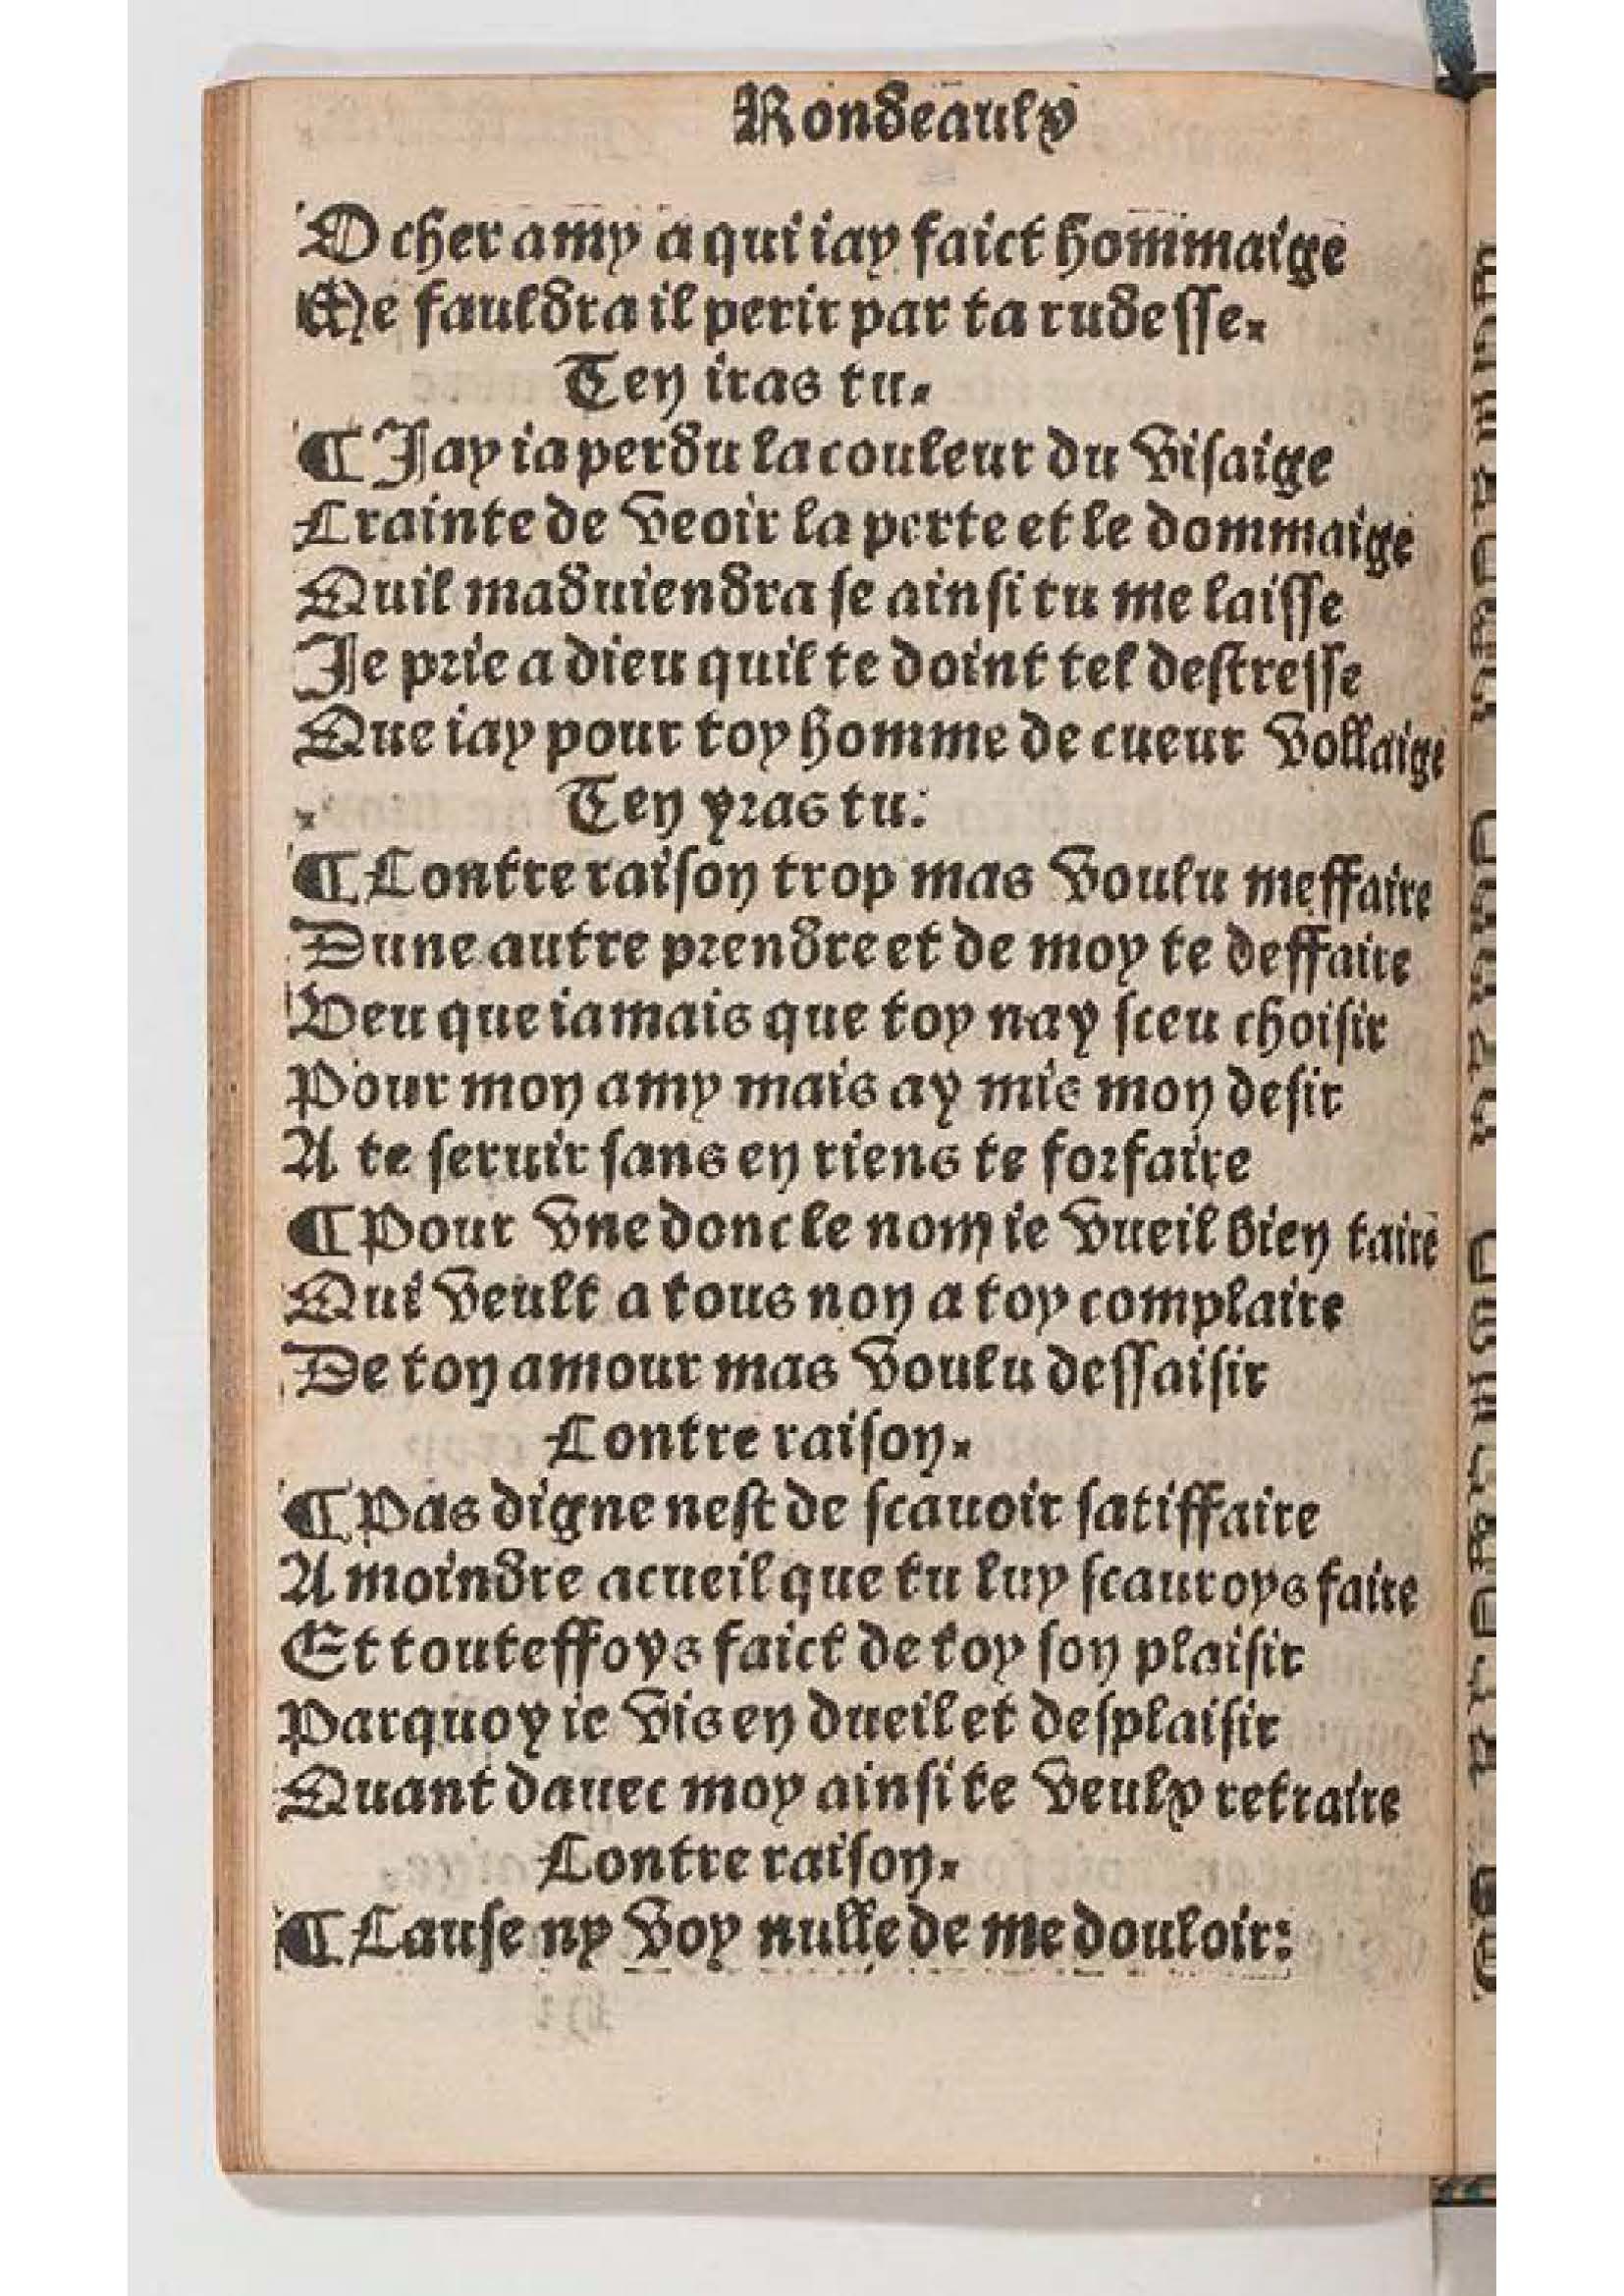 Rondeaulx
O cher amy a qui iay faict hommaige
Me fauldra il perir par ta rudesse.
Ten iras tu.
¶ Jay ia perdu la couleur du visaige
Crainte de veoir la perte et le dommaige
Quil maduiendra se ainsi tu me laisse
Je prie a dieu quil te doint tel destresse
Que iay pour toy homme de cueur vollaige
Ten yras tu:
¶ Contre raison trop mas voulu meffaire
Dune autre prendre et de moy te deffaire
Veu que iamais que toy nay sceu choisir
Pour mon amy mais ay mis mon desir
A te seruir sans en riens te forfaire
¶ Pour vne donc le nom ie vueil bien taire
Qui veult a tous non a toy complaire
De ton amour mas voulu dessaisir
Contre raison.
¶ Pas digne nest de scauoir satiffaire
A moindre acueil que tu luy scauroys faire
Et touteffoys faict de toy son plaisir
Parquoy ie vis en dueil et desplaisir
Quant dauec moy ainsi te veulx retraire
Contre raison.
¶ Cause ny voy nulle de me douloir: